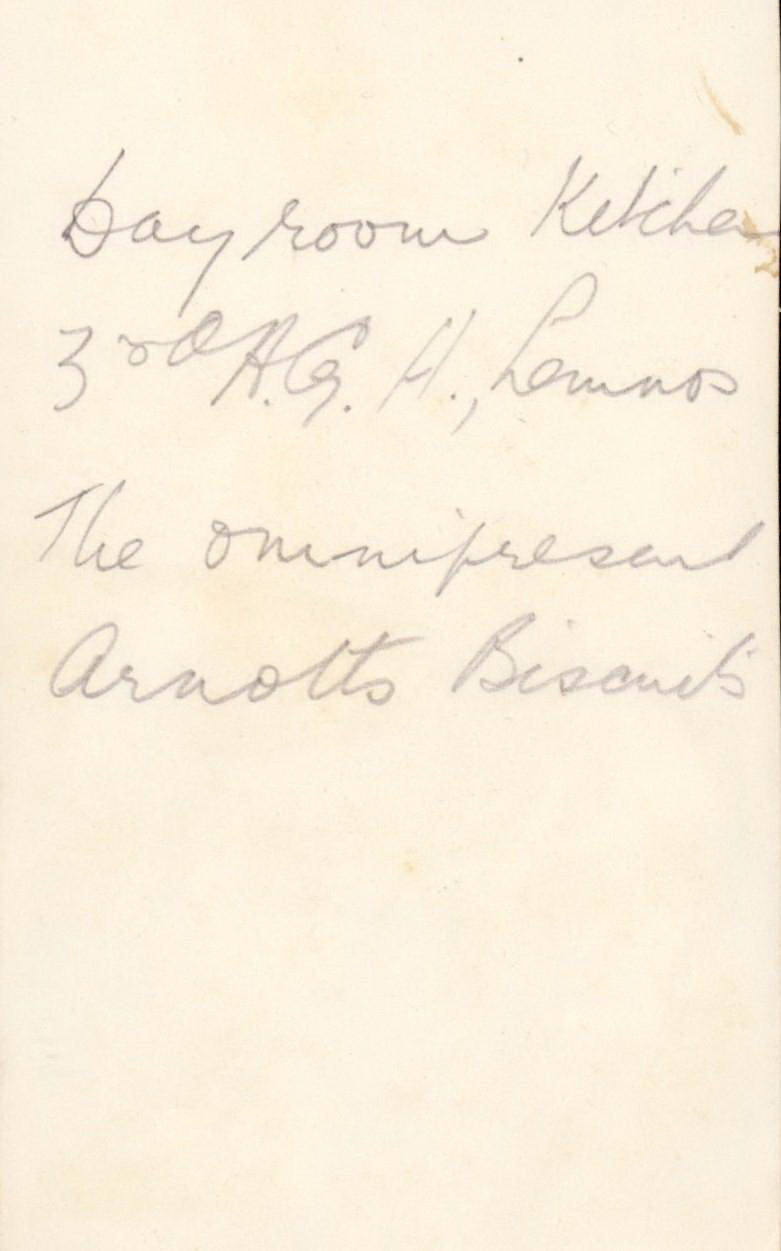 Day room Kitchen
3rd A.G.H., Lemnos
The omnipresent
Arnotts Biscuits